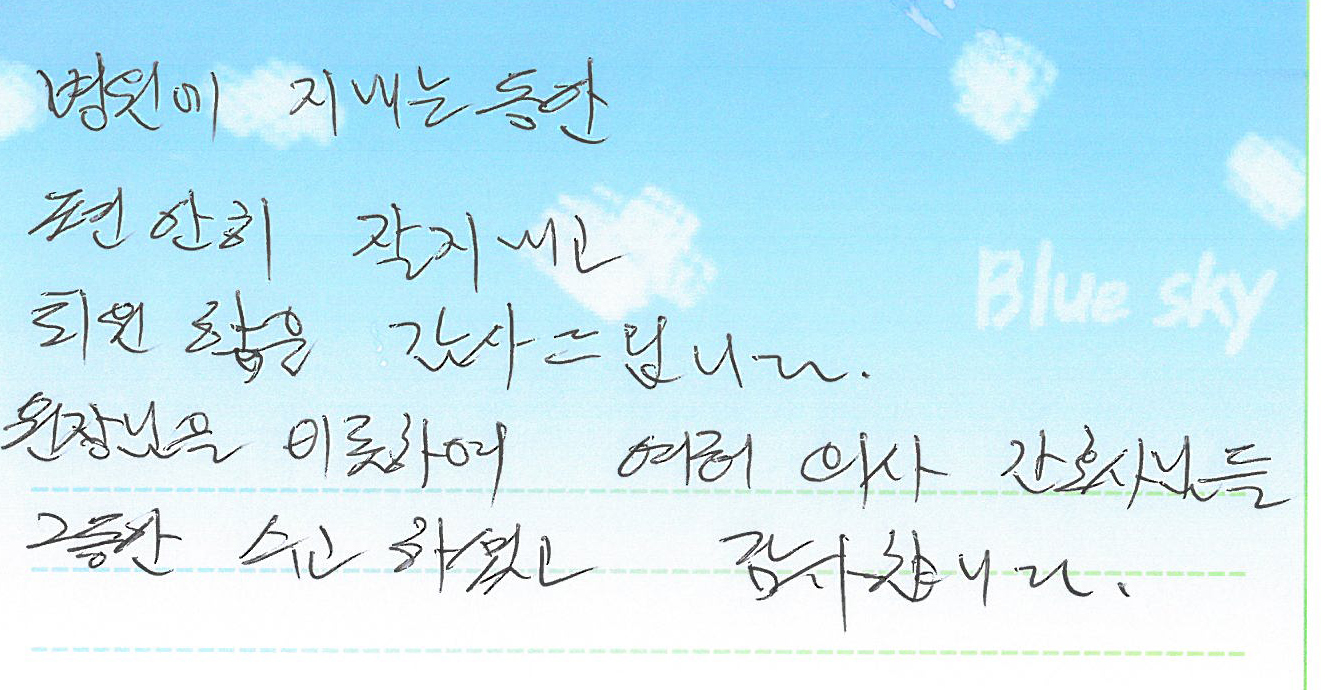 병원에 지내는동안
편안히 잘지내고
Blue sky
퇴원 함을 감사드립니다.
원장님은 이릇하여 여러 의사 간호사님들
그동안 수고 하셨고 감사합니다.